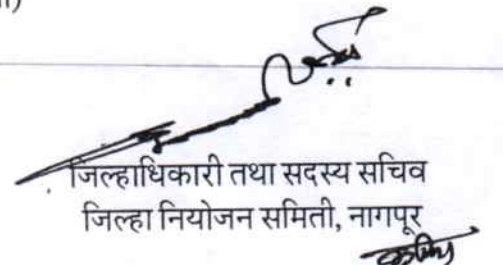 जिल्हाधिकारी तथा सदस्य सचिव
जिल्हा नियोजन समिती, नागपूर